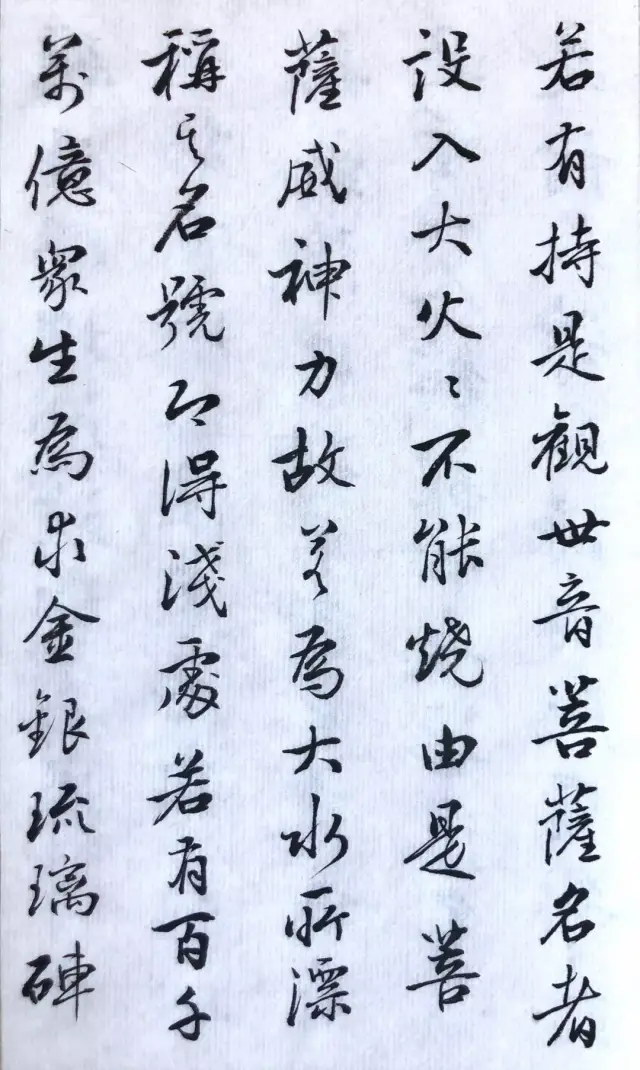 若有持是觀世音菩薩名者
設入大火〻不能燒由是菩
薩威神力故若為大水所漂
稱其名號即得淺處若有百千
萬億眾生為求金銀琉璃硨